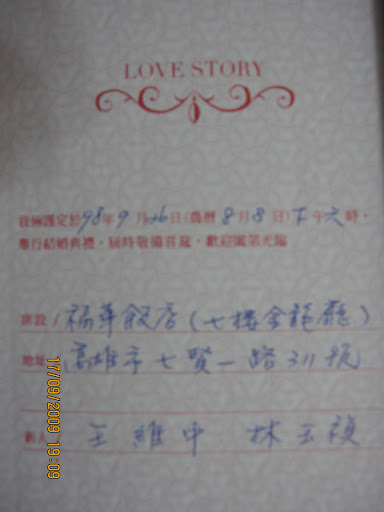 LOVE STORY
我倆謹定於98年9月26日(農曆8月8日)下午六時,
舉行結婚典禮,屆時敬備喜筵,歡迎闔第光臨
席設/福華飯店(七樓金龍廳)
地址/高雄市七賢一路311號
新人/王維中 林玉禎
17/09/2009 19:09